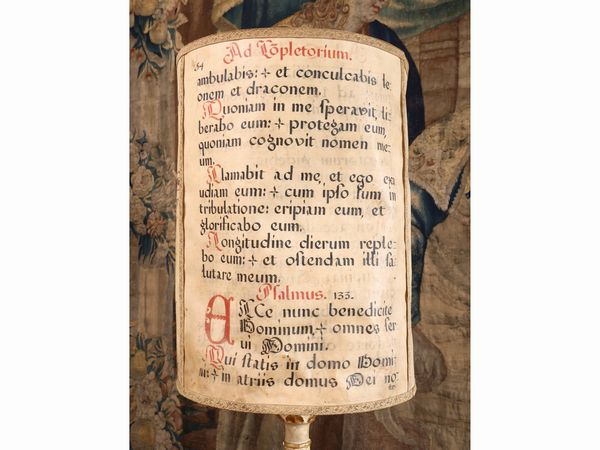 Ad Cõpletorium.
54
ambulabis: + et conculcabis le
onem et draconem.
Quoniam in me speravit, li:
berabo eum: + protegam eum,
quoniam cognovit nomen me:
um.
Clamabit ad me, et ego exau
diam eum: + cum ipso sum in
tribulatione: eripiam eum, et
glorificabo eum.
Longitudine dierum reple:
bo eum: + et ostendam illi sa:
lutare meum.
Psalmus. 133.
ECce nunc benedicite
Dominum, + omnes ser
vi Domini.
Qui statis in domo Domi
ni: + in atriis domus Dei no